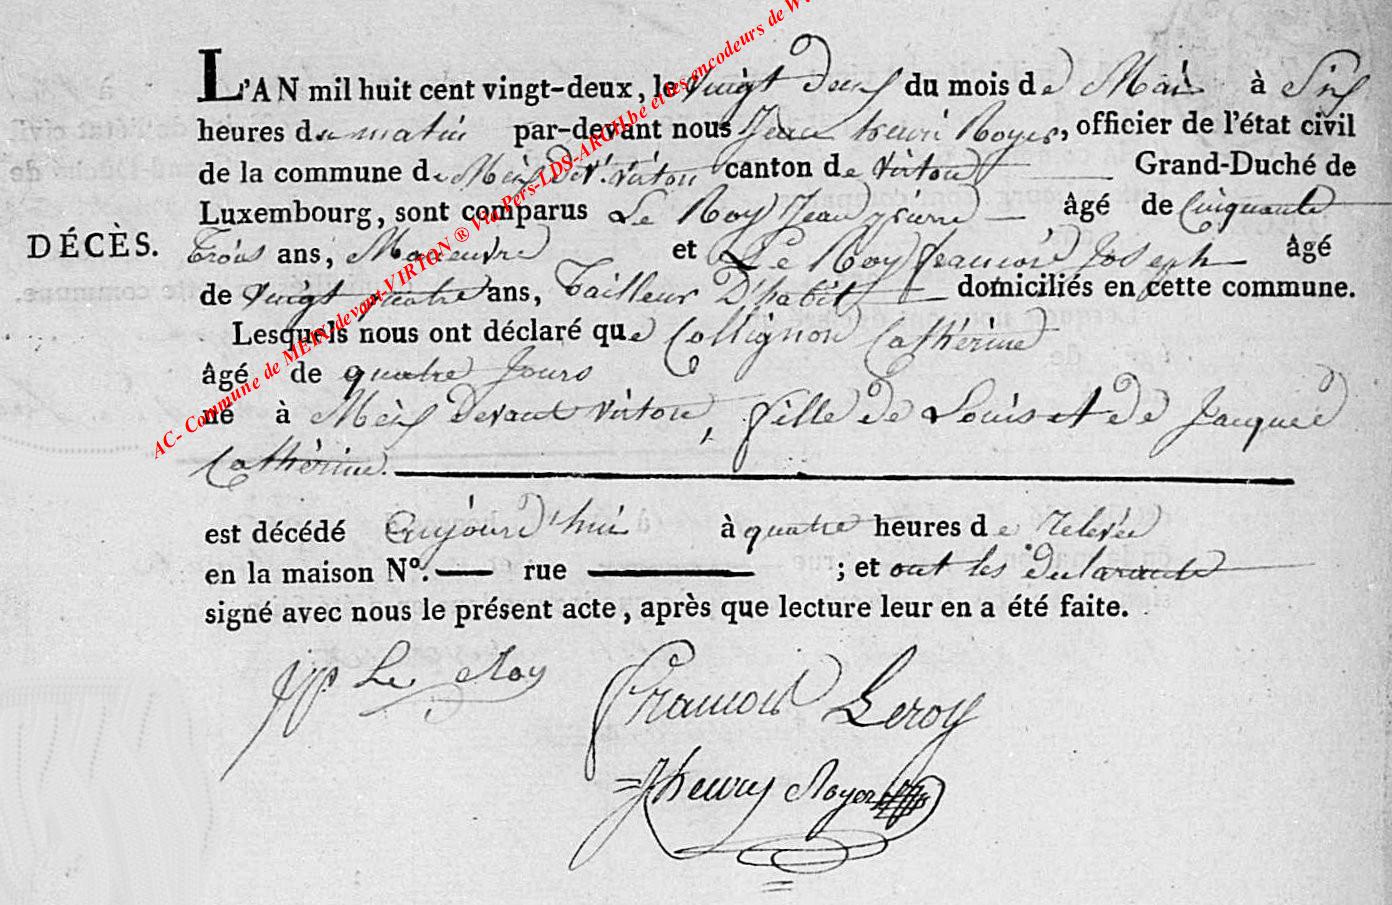 L'AN mil huit cent vingt-deux, le vingt deux du mois de Mai à Six
heures du matin par-devant nous Jean henri Royer, officier de l'état civil
de la commune de Meix Devt. virton canton de virton Grand-Duché de
Luxembourg, sont comparus Le Roy Jean pierre âgé de Cinquante
DÉCÈS.
trois ans, Manœuvre et Le Roy francois Joseph âgé
de vingt quatre ans, Tailleur D'habit domiciliés en cette commune.
Lesquels nous ont déclaré que Collignon Cathérine
âgé de quatre Jours
né à Meix Devant virton, fille de Louis et de Jacques
Cathérine.
est décédé aujourd'hui à quatre heures de Relevée
en la maison N°. rue ; et ont les Déclarants
signé avec nous le présent acte, après que lecture leur en a été faite.
JP Le Roy
francois Leroy
Jhenry Royer
AC- Commune de MEIX-devant-VIRTON ® Via Pers-LDS-ARCH.be et les encodeurs de